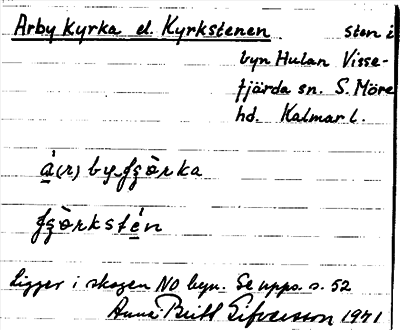 Arby Kyrka el. Kyrkstenen sten i
byn Hulan Visse-
fjärda sn. S. Möre
hd. Kalmar l.
by
Ligger i skogen NO byn. Se upps. s. 52
Anna-Britt Sifversson 1971